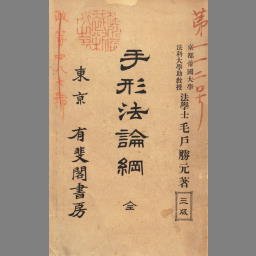 第一一二号
京都帝國大學
法科大學助教授
法學士 毛戸勝元著
三版
手形法論綱 全
東京 有斐閣書房